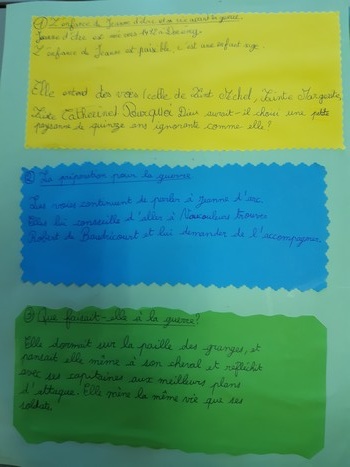 ① L'enfance de Jeanne d'Arc et sa vie avant la guerre.
Jeanne d'arc est née vers 1412 à Domrémy.
L'enfance de Jeanne est paisible, c'est une enfant sage.
Elle entend des voix (celle de Saint Michel, Sainte Margerite,
Sainte Catherine) Pourquoi Dieu aurait-il choisi une petite
paysanne de quinze ans ignorante comme elle ?
② La préparation pour la guerre
Les voix continuent de parler à Jeanne d'arc.
Elles lui conseille d'aller à Vaucouleurs trouver
Robert de Baudricourt et lui demander de l'accompagner
③ Que faisait-elle à la guerre ?
Elle dormait sur la paille des granges, et
pansait elle même à son cheval et réfléchit
avec ses capitaines aux meilleurs plans
d'attaque. Elle mène la même vie que ses
soldats.